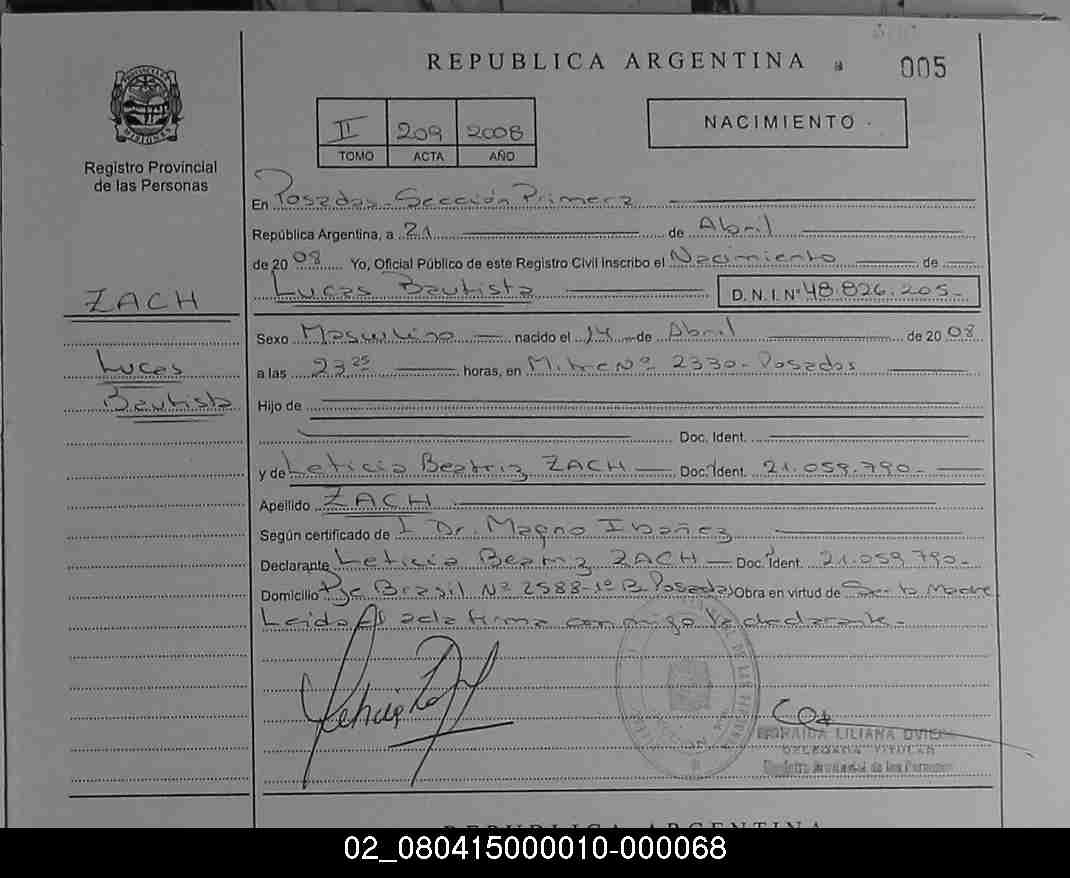 REPUBLICA ARGENTINA
005
PROVINCIA DE MISIONES
Registro Provincial
de las Personas
II 209 2008
TOMO ACTA AÑO
NACIMIENTO
En Posadas - Sección Primera
República Argentina, a 21 de Abril
de 2008 Yo, Oficial Público de este Registro Civil Inscribo el Nacimiento de
Lucas Bautista D.N.I. Nº 48.826.205-
ZACH
Lucas
Bautista
Sexo Masculino nacido el 14 de Abril de 2008
a las 23 25 horas, en Mitre Nº 2330 - Posadas
Hijo de
Doc. Ident.
y de Leticia Beatriz ZACH Doc. Ident. 21.059.790-
Apellido ZACH
Según certificado de Dr. Magno Ibañez
Declarante Leticia Beatriz ZACH Doc. Ident. 21.059.790-
Domicilio Pje Brasil Nº 2588-1º B Posadas Obra en virtud de Ser la Madre
Leida El acta firma conmigo la declarante.-
LILIANA
DELEGADA TITULAR
Registro Provincial de las Personas
REPUBLICA ARGENTINA
02_080415000010-000068